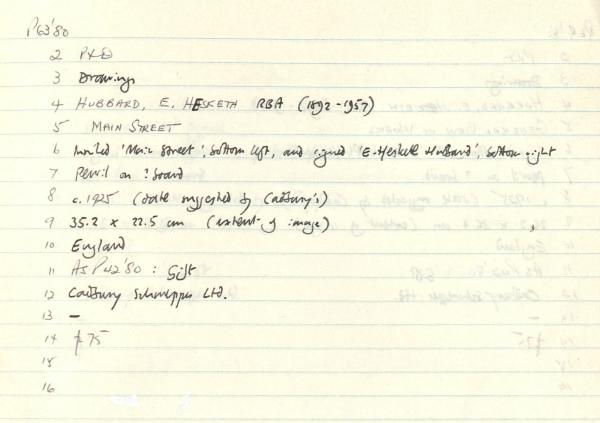 P63'80
2 P&D
3 Drawings
4 HUBBARD, E. HESKETH RBA (1892-1957)
5 MAIN STREET
6 Inscribed 'Main Street', bottom left, and signed 'E. Hesketh Hubbard', bottom right
7 Pencil on ? board
8 c. 1925 (date suggested by Cadbury's)
9 35.2 x 22.5 cm (extent of image)
10 England
11 As P42'80 : Gift
12 Cadbury Schweppes Ltd.
13 –
14 £75
15
16